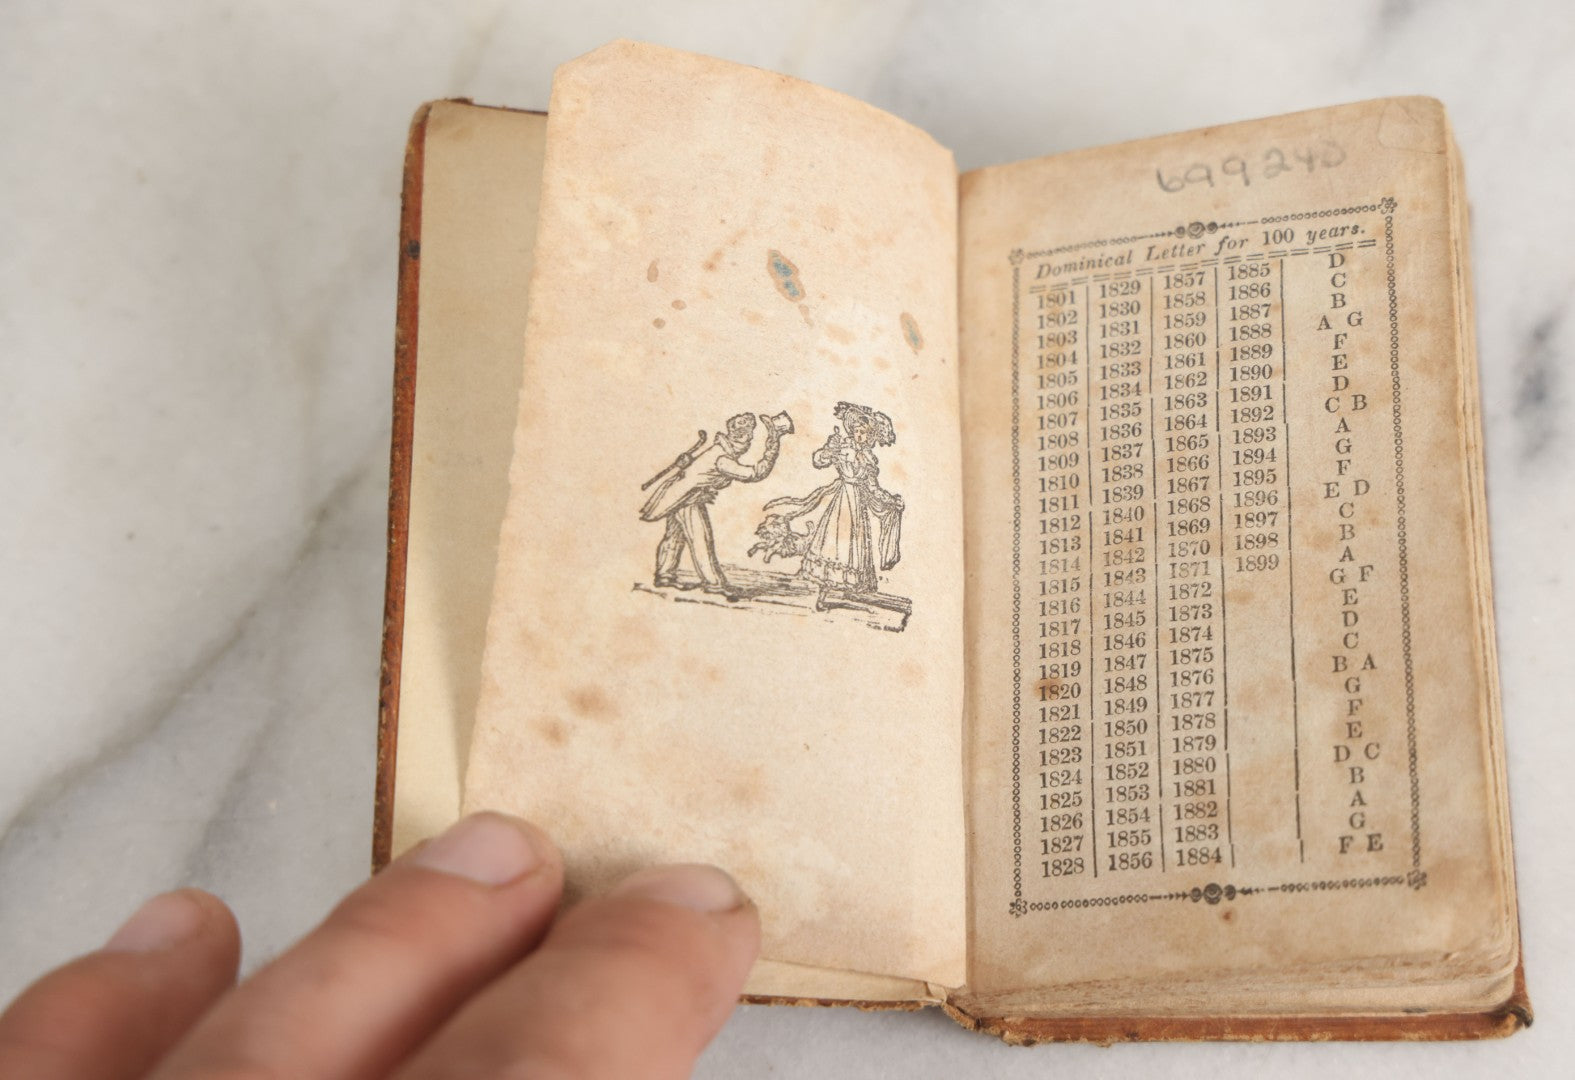 699240
Dominical Letter for 100 years.
1801 | 1829 | 1857 | 1885 | D
1802 | 1830 | 1858 | 1886 | C
1803 | 1831 | 1859 | 1887 | B
1804 | 1832 | 1860 | 1888 | A G
1805 | 1833 | 1861 | 1889 | F
1806 | 1834 | 1862 | 1890 | E
1807 | 1835 | 1863 | 1891 | D
1808 | 1836 | 1864 | 1892 | C B
1809 | 1837 | 1865 | 1893 | A
1810 | 1838 | 1866 | 1894 | G
1811 | 1839 | 1867 | 1895 | F
1812 | 1840 | 1868 | 1896 | E D
1813 | 1841 | 1869 | 1897 | C
1814 | 1842 | 1870 | 1898 | B
1815 | 1843 | 1871 | 1899 | A
1816 | 1844 | 1872 | | G F
1817 | 1845 | 1873 | | E
1818 | 1846 | 1874 | | D
1819 | 1847 | 1875 | | C
1820 | 1848 | 1876 | | B A
1821 | 1849 | 1877 | | G
1822 | 1850 | 1878 | | F
1823 | 1851 | 1879 | | E
1824 | 1852 | 1880 | | D C
1825 | 1853 | 1881 | | B
1826 | 1854 | 1882 | | A
1827 | 1855 | 1883 | | G
1828 | 1856 | 1884 | | F E